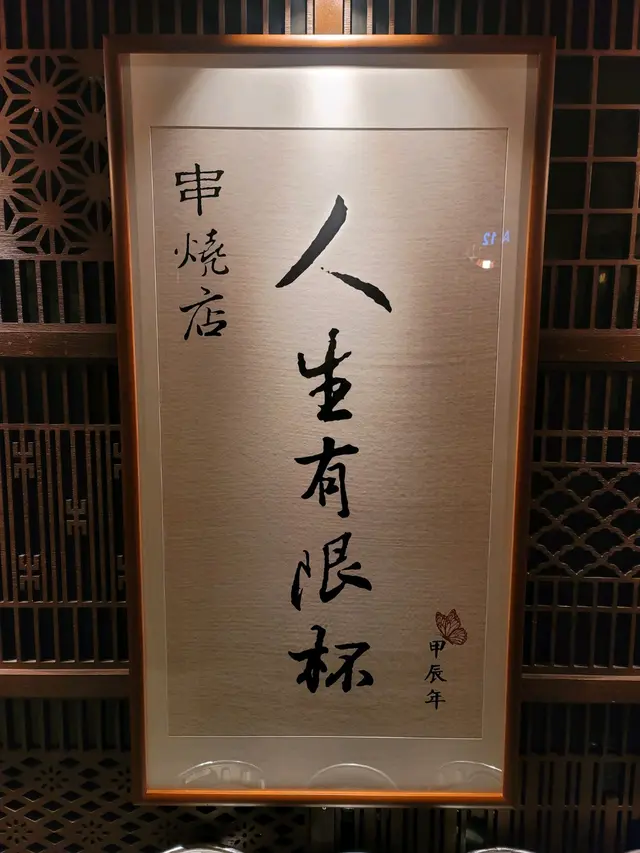 串燒店
人生有限杯
甲辰年
A 12